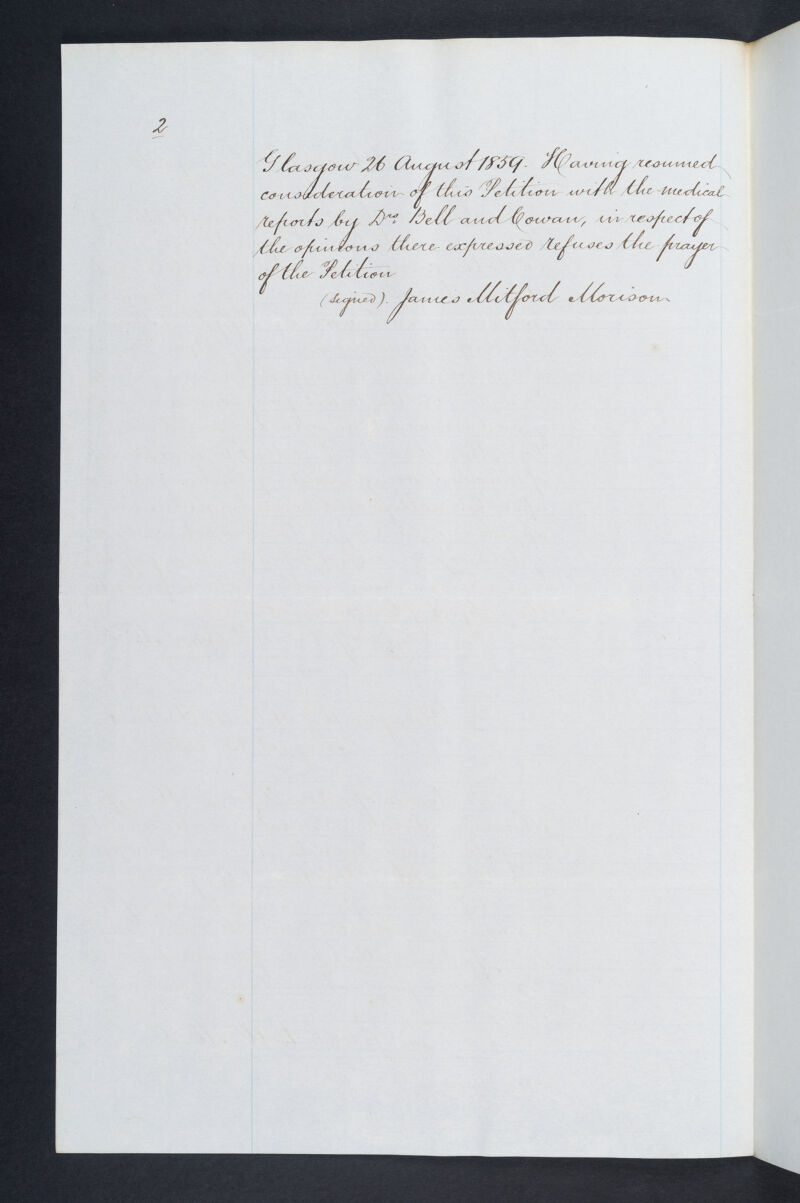 2
Glasgow 26 August 1859. Having resumed
consideration of this Petition with the medical
reports by Drs Bell and Cowan, in respect of
the opinions there expressed refuses the prayer
of the Petition
(signed). James Mitford Morison